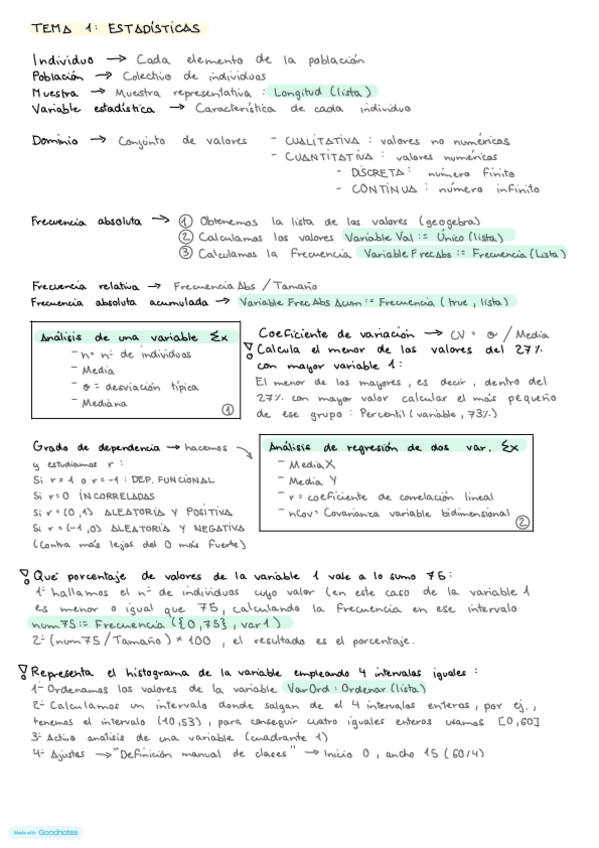 TEMA 1: ESTADÍSTICAS
Individuo → Cada elemento de la población
Población → Colectivo de individuos
Muestra → Muestra representativa : Longitud (lista)
Variable estadística → Característica de cada individuo
Dominio → Conjunto de valores - CUALITATIVA : valores no numéricos
- CUANTITATIVA : valores numéricos
- DISCRETA : número finito
- CONTÍNUA : número infinito
Frecuencia absoluta → ① Obtenemos la lista de los valores (geogebra)
② Calculamos los valores Variable Val := Único (lista)
③ Calculamos la Frecuencia Variable FrecAbs := Frecuencia (Lista)
Frecuencia relativa → Frecuencia Abs / Tamaño
Frecuencia absoluta acumulada → Variable FrecAbs Acum := Frecuencia ( true , lista)
Análisis de una variable Σx
- n = nº de individuos
- Media
- σ = desviación típica
- Mediana
①
Coeficiente de variación → CV = σ / Media
Calcula el menor de los valores del 27%
con mayor variable 1:
El menor de los mayores , es decir , dentro del
27% con mayor valor calcular el más pequeño
de ese grupo : Percentil (variable , 73%)
Grado de dependencia → hacemos
y estudiamos r :
Si r = 1 o r = -1 : DEP. FUNCIONAL
Si r = 0 INCORRELADAS
Si r = (0,1) ALEATORIA Y POSITIVA
Si r = (-1,0) ALEATORIA Y NEGATIVA
(Contra más lejos del 0 más fuerte)
Análisis de regresión de dos var. Σx
- Media X
- Media Y
- r = coeficiente de correlación lineal
- nCov = Covarianza variable bidimensional
②
Qué porcentaje de valores de la variable 1 vale a lo sumo 75 :
1º hallamos el nº de individuos cuyo valor (en este caso de la variable 1
es menor o igual que 75, calculando la Frecuencia en ese intervalo
num75 := Frecuencia ({0,75} , var1)
2º (num75 / Tamaño) * 100 , el resultado es el porcentaje.
Representa el histograma de la variable empleando 4 intervalos iguales :
1º Ordenamos los valores de la variable VarOrd : Ordenar (lista)
2º Calculamos un intervalo donde salgan de el 4 intervalos enteros , por ej.,
tenemos el intervalo (10,53) , para conseguir cuatro iguales enteros usamos [0,60]
3º Activo análisis de una variable (cuadrante 1)
4º Ajustes → "Definición manual de clases" → Inicio 0 , ancho 15 (60/4)
Made with Goodnotes